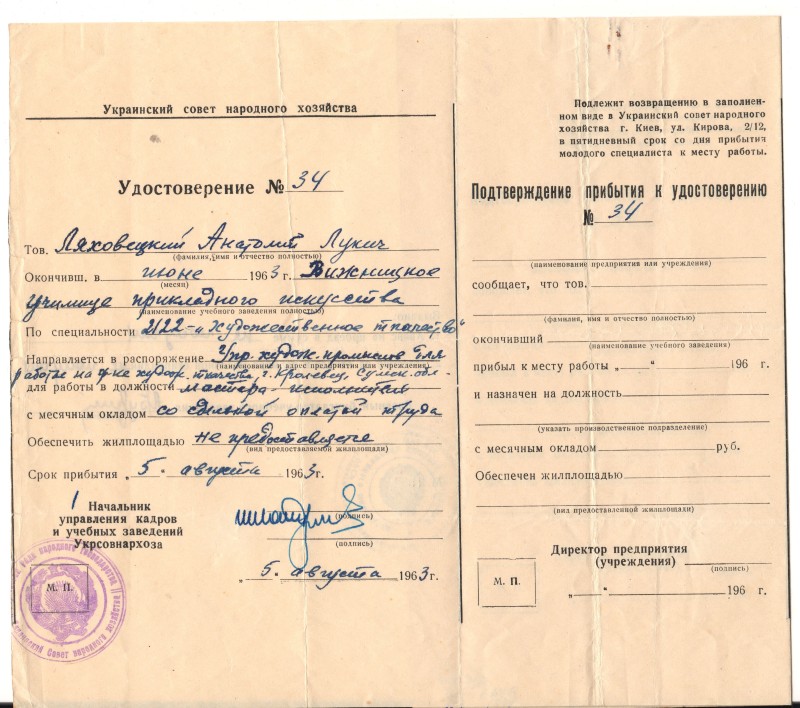 Украинский совет народного хозяйства
Удостоверение № 34
Тов. Ляховецкий Анатолий Лукич
(фамилия, имя и отчество полностью)
Окончивш. в июне 1963 г. Вижницкое
(месяц)
училище прикладного искусства
(наименование учебного заведения полностью)
По специальности 2122 - „художественное ткачество"
Направляется в распоряжение Упр. худож. промыслов для
(наименование и адрес предприятия или учреждения)
работы на ф-ке худож. ткачества, г. Кролевец, Сумск. обл.
для работы в должности мастера исполнителя
с месячным окладом со сдельной оплатой труда
Обеспечить жилплощадью не предоставляется
(вид предоставляемой жилплощади)
Срок прибытия „ 5 " августа 1963 г.
Начальник
управления кадров
и учебных заведений
Укрсовнархоза
(подпись)
(подпись)
„ 5 " августа 1963 г.
М. П.
Совет народного хозяйства
Подлежит возвращению в заполнен-
ном виде в Украинский совет народного
хозяйства г. Киев, ул. Кирова, 2/12,
в пятидневный срок со дня прибытия
молодого специалиста к месту работы.
Подтверждение прибытия к удостоверению
№ 34
(наименование предприятия или учреждения)
сообщает, что тов.
(фамилия, имя и отчество полностью)
окончивший
(наименование учебного заведения)
прибыл к месту работы „ " 196 г.
и назначен на должность
(указать производственное подразделение)
с месячным окладом руб.
Обеспечен жилплощадью
(вид предоставленной жилплощади)
Директор предприятия
(учреждения)
(подпись)
М. П.
„ " 196 г.